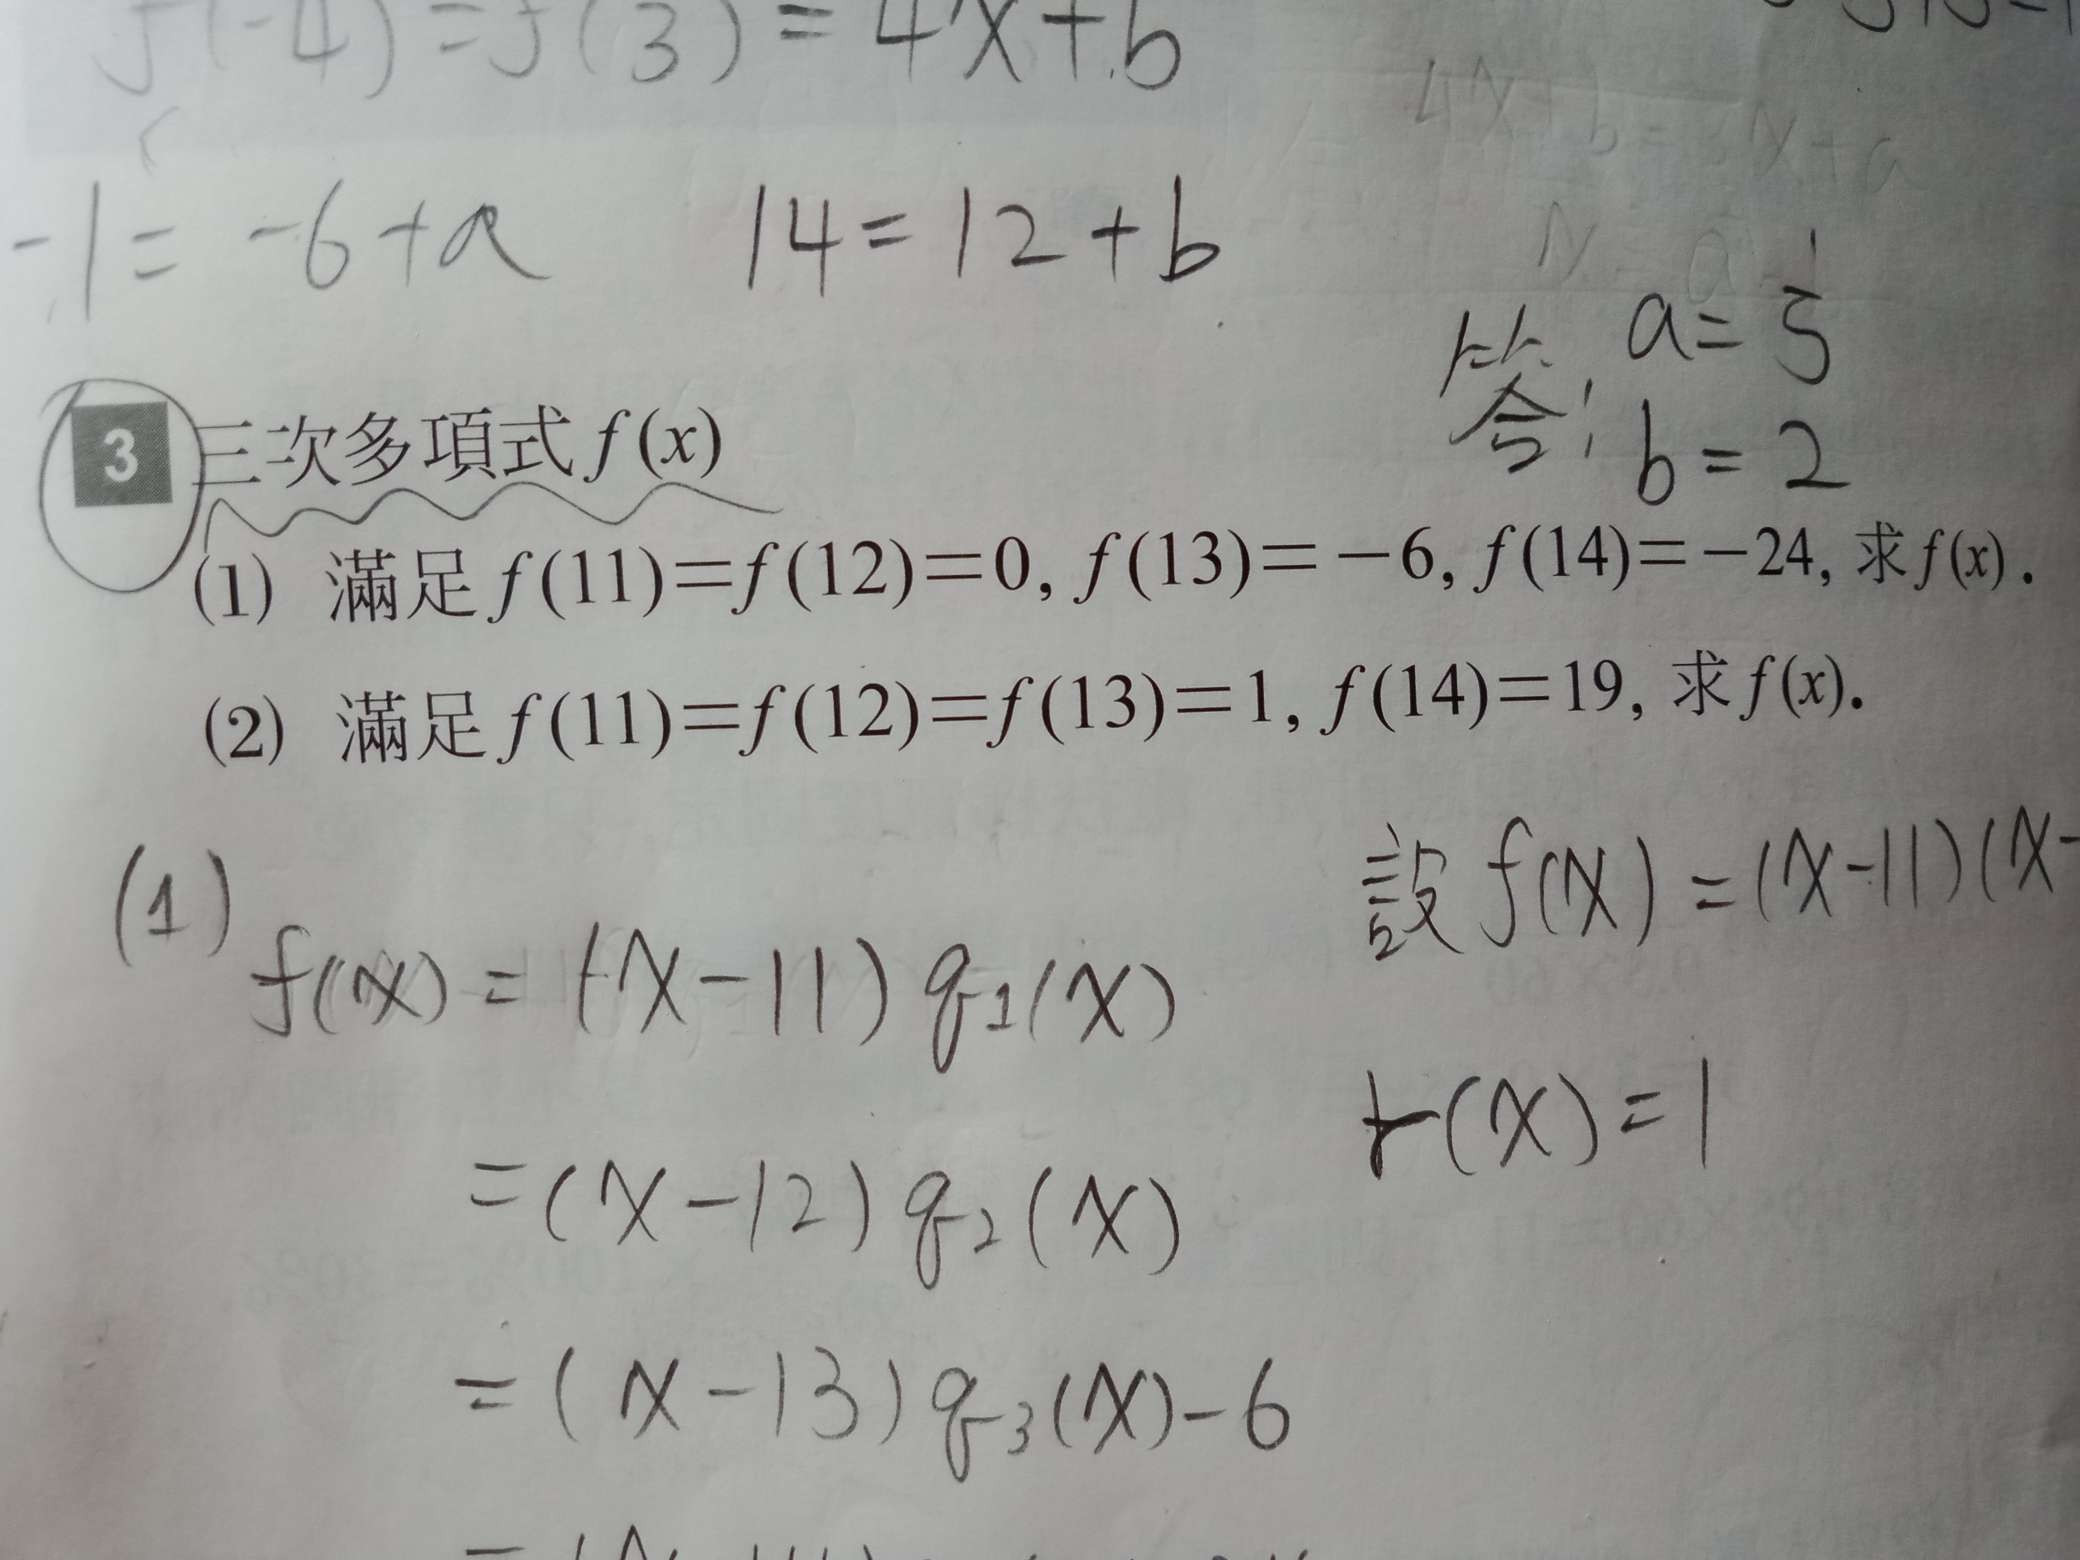 f(-4)=f(3)=4x+b
-1=-6+a 14=12+b
答: a=5
b=2
3 三次多項式 f(x)
(1) 滿足 f(11)=f(12)=0, f(13)=-6, f(14)=-24, 求 f(x).
(2) 滿足 f(11)=f(12)=f(13)=1, f(14)=19, 求 f(x).
(1) f(x)=(x-11)q₁(x)
=(x-12)q₂(x)
=(x-13)q₃(x)-6
設 f(x)=(x-11)(x-
r(x)=1